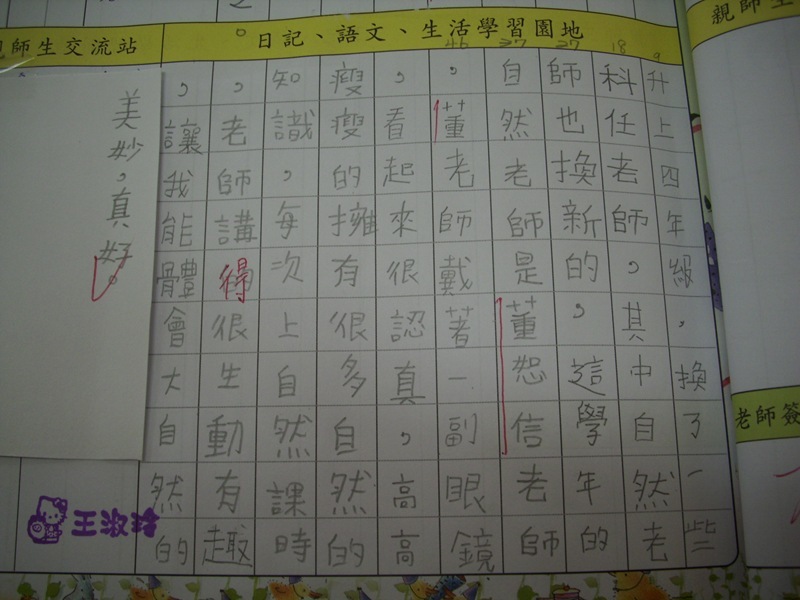 日記、語文、生活學習園地
師生交流站
親師生
老師簽
46 27 27 18 9
升上四年級，換了一些
科任老師，其中自然老
師也換新的，這學年的
自然老師是董恕信老師
，董老師戴著一副眼鏡
，看起來很認真，高高
瘦瘦的擁有很多自然的
知識，每次上自然課時
，老師講得很生動有趣
，讓我能體會大自然的
美妙，真好。
王淑玲